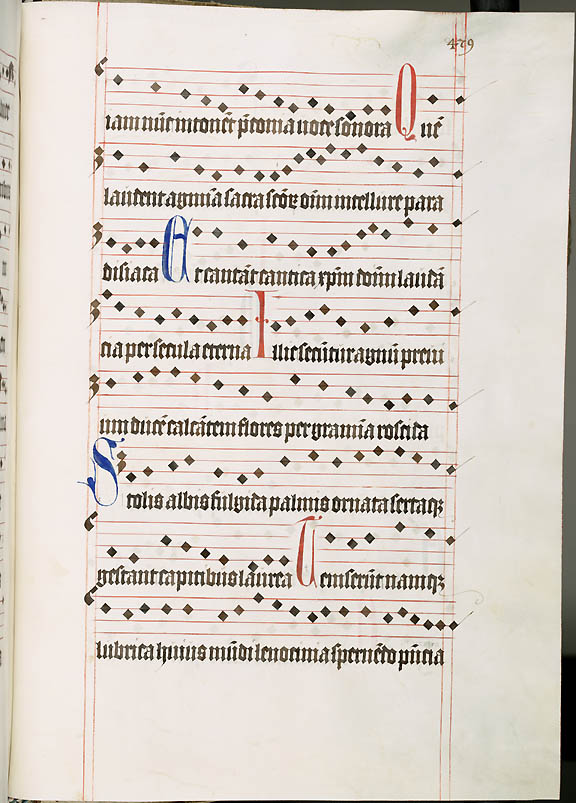 479
iam nūc intonēt p̄conia uoce sonora Quē
laudent agmīa sacra scōꝝ oīm intellure para
disiaca Et cantāt cantica xp̄m dn̄m laudā
cia per secula eterna Illic secūtur agnū previ
um ducē calcātem flores per gramīa roscida
Stolis albis fulgida palmis ornata sertaqꝫ
gestant capitibus laurea Cemserūt namqꝫ
lubrica huius mūdi lenocinia spernēdo p̄ncia